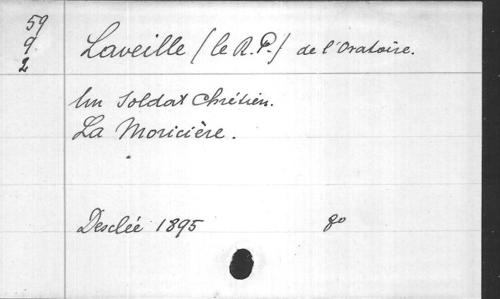 59
9
2
Laveille (le R. P.) de l'Oratoire.
Un Soldat Chrétien.
La Moricière.
Desclée 1895 8o